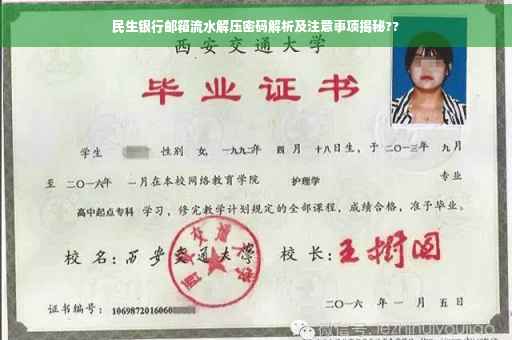 民生银行邮箱流水解压密码解析及注意事项揭秘??
西安交通大学
毕业证书
学生 性别 女,一九九二年 四月 十八日生,于二〇一三年 九月
至 二〇一六年 一月在本校网络教育学院 护理学 专业
高中起点专科 学习,修完教学计划规定的全部课程,成绩合格,准予毕业。
校名:西安交通大学 校长:王树国
证书编号:1069872016060
二〇一六 年 一 月 五 日
微信号:jezhihuiyoujiao